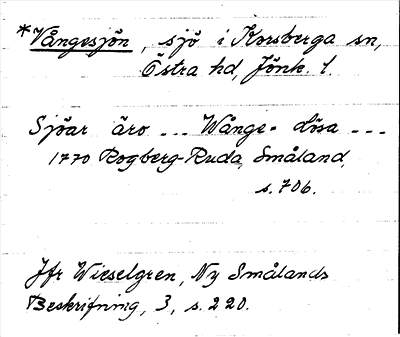 *Vångesjön, sjö i Korsberga sn,
Östra hd, Jönk. l.
Sjöar äro ... Wånge- lösa ...
1770 Rogberg-Ruda, Småland,
s. 706.
Jfr Wieselgren, Ny Smålands
Beskrifning, 3, s. 220.